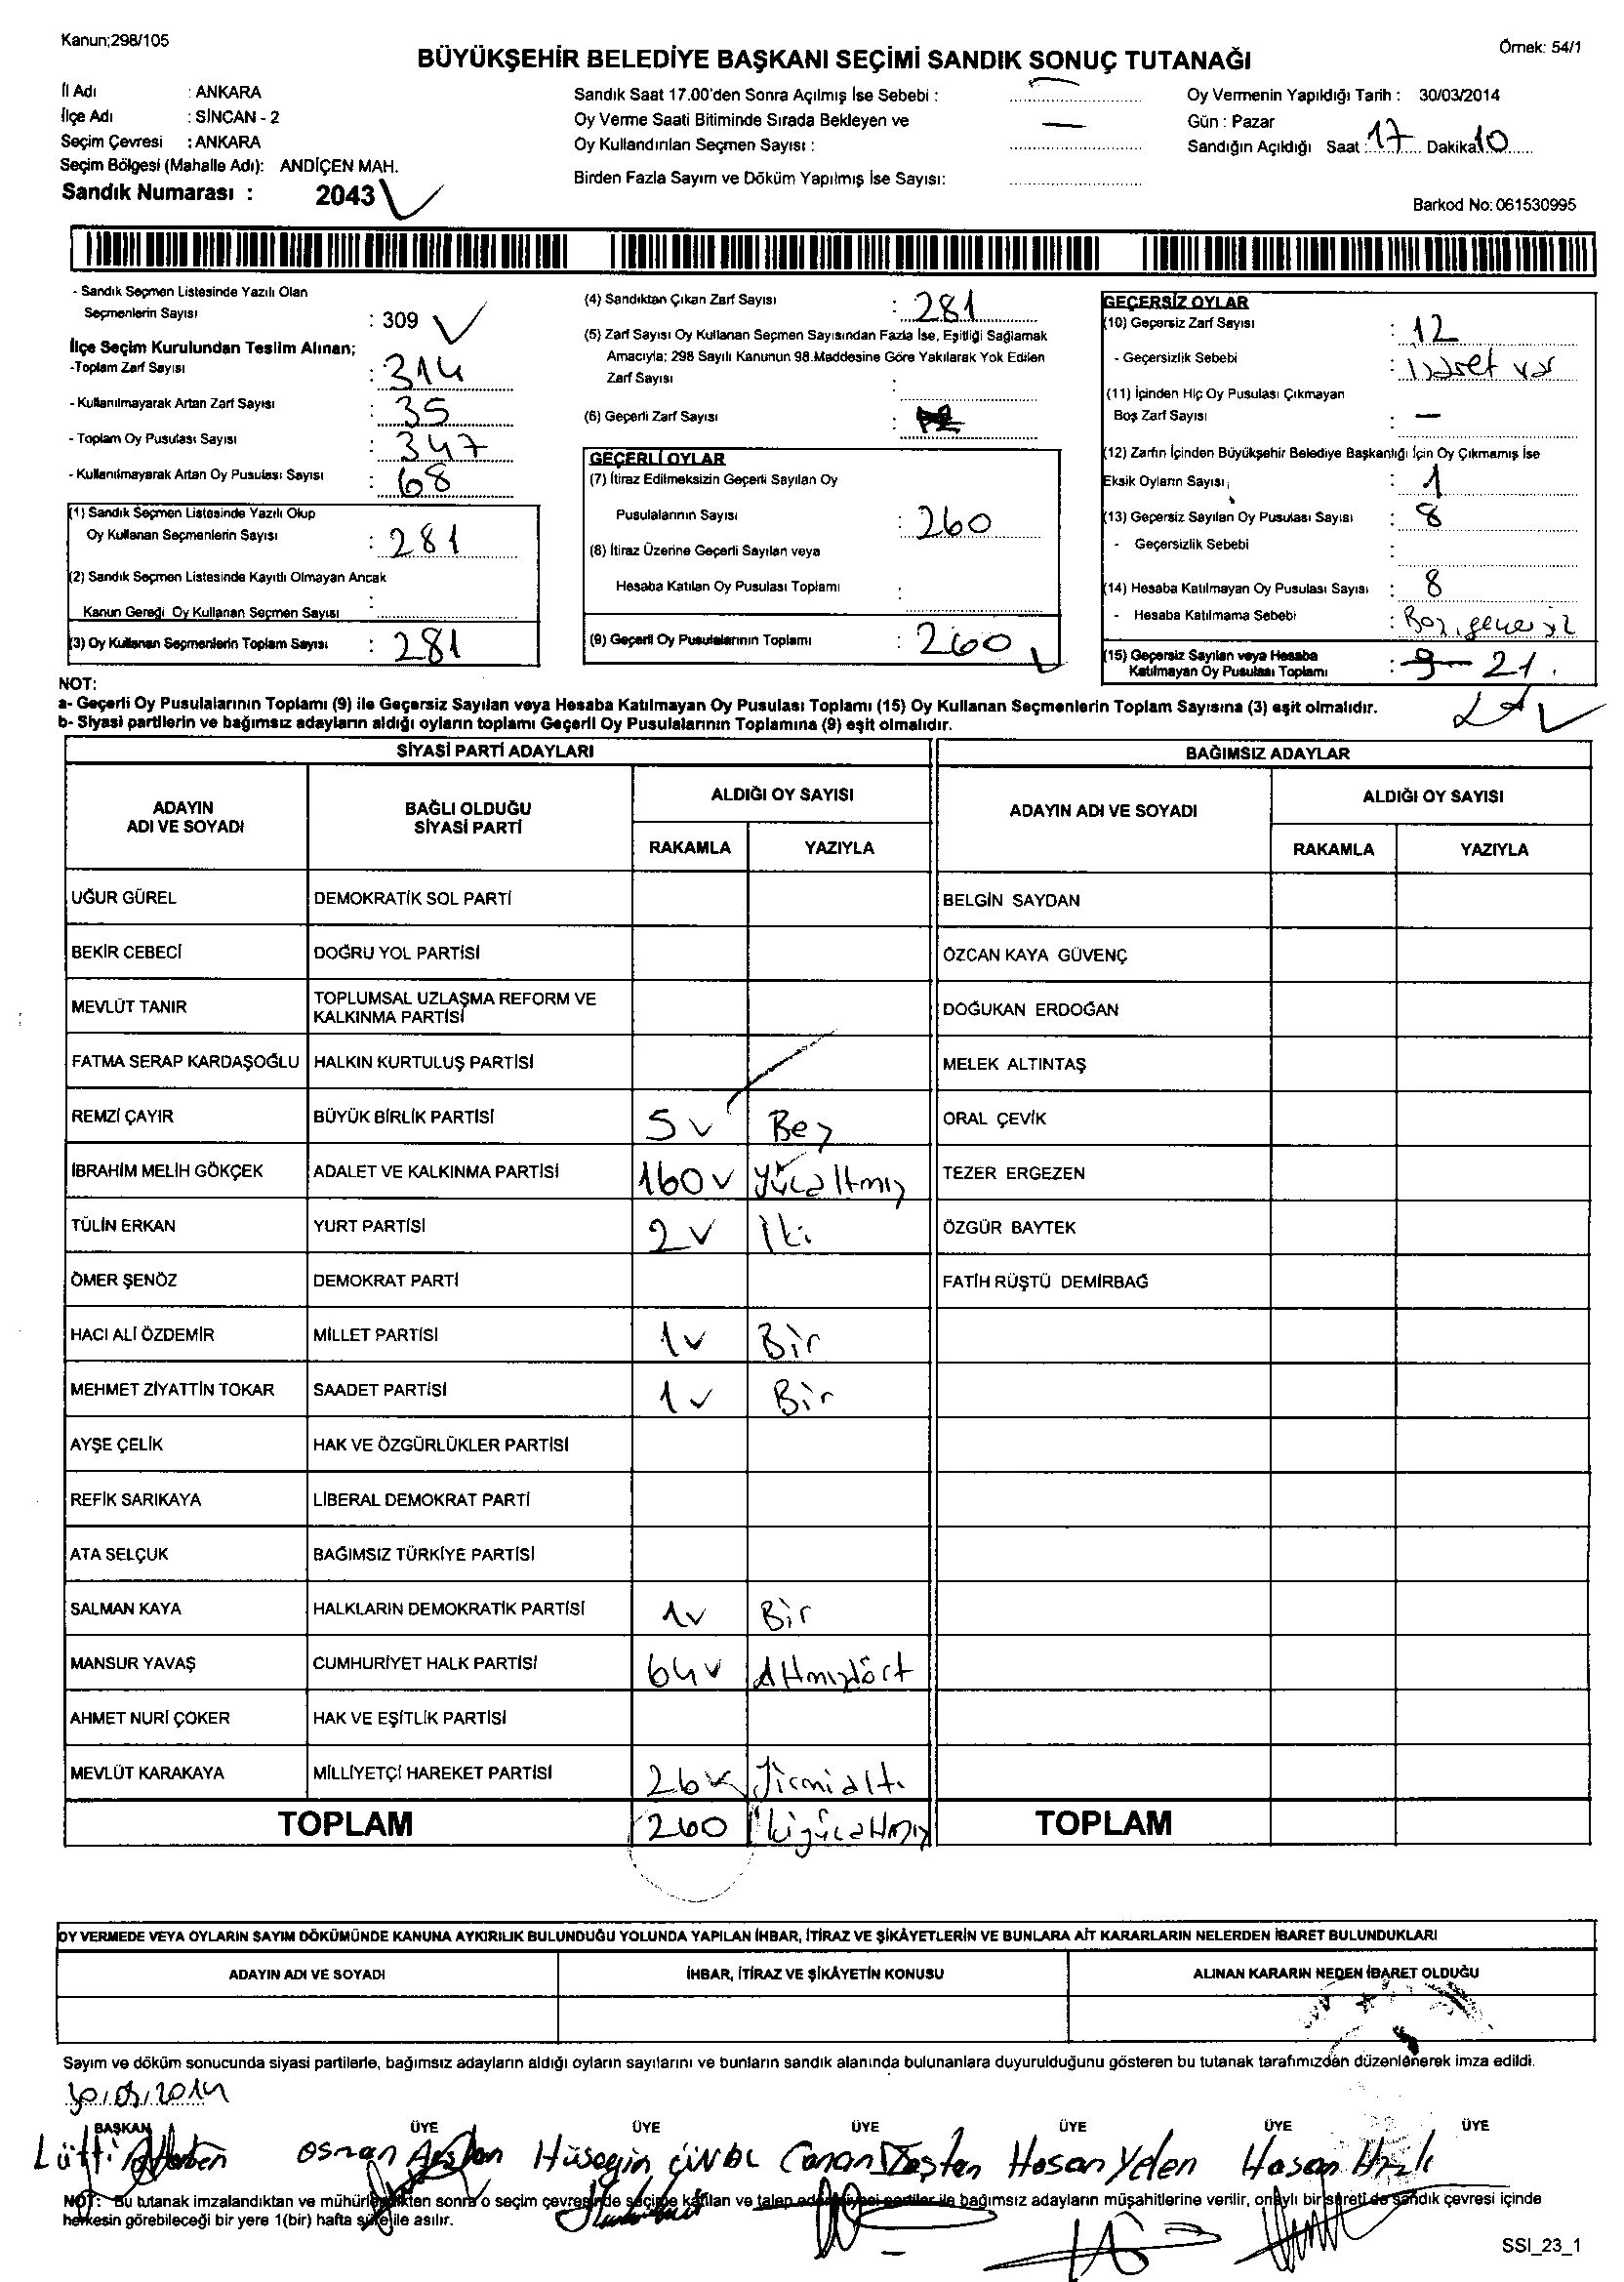 Kanun;298/105
Örnek: 54/1
BÜYÜKŞEHİR BELEDİYE BAŞKANI SEÇİMİ SANDIK SONUÇ TUTANAĞI
İl Adı : ANKARA
İlçe Adı : SİNCAN - 2
Seçim Çevresi : ANKARA
Seçim Bölgesi (Mahalle Adı): ANDİÇEN MAH.
Sandık Numarası : 2043
Sandık Saat 17.00'den Sonra Açılmış İse Sebebi :
Oy Verme Saati Bitiminde Sırada Bekleyen ve
Oy Kullandırılan Seçmen Sayısı : —
Birden Fazla Sayım ve Döküm Yapılmış İse Sayısı:
Oy Vermenin Yapıldığı Tarih : 30/03/2014
Gün : Pazar
Sandığın Açıldığı Saat : 17 Dakika: 10
Barkod No: 061530995
- Sandık Seçmen Listesinde Yazılı Olan
Seçmenlerin Sayısı : 309
İlçe Seçim Kurulundan Teslim Alınan;
-Toplam Zarf Sayısı : 314
- Kullanılmayarak Artan Zarf Sayısı : 35
- Toplam Oy Pusulası Sayısı : 347
- Kullanılmayarak Artan Oy Pusulası Sayısı : 68
(1) Sandık Seçmen Listesinde Yazılı Olup
Oy Kullanan Seçmenlerin Sayısı : 281
(2) Sandık Seçmen Listesinde Kayıtlı Olmayan Ancak
Kanun Gereği Oy Kullanan Seçmen Sayısı :
(3) Oy Kullanan Seçmenlerin Toplam Sayısı : 281
(4) Sandıktan Çıkan Zarf Sayısı : 281
(5) Zarf Sayısı Oy Kullanan Seçmen Sayısından Fazla İse, Eşitliği Sağlamak
Amacıyla; 298 Sayılı Kanunun 98.Maddesine Göre Yakılarak Yok Edilen
Zarf Sayısı :
(6) Geçerli Zarf Sayısı :
GEÇERLİ OYLAR
(7) İtiraz Edilmeksizin Geçerli Sayılan Oy
Pusulalarının Sayısı : 260
(8) İtiraz Üzerine Geçerli Sayılan veya
Hesaba Katılan Oy Pusulası Toplamı :
(9) Geçerli Oy Pusulalarının Toplamı : 260
GEÇERSİZ OYLAR
(10) Geçersiz Zarf Sayısı : 12
- Geçersizlik Sebebi : İşaret var
(11) İçinden Hiç Oy Pusulası Çıkmayan
Boş Zarf Sayısı : —
(12) Zarfın İçinden Büyükşehir Belediye Başkanlığı İçin Oy Çıkmamış İse
Eksik Oyların Sayısı : 1
(13) Geçersiz Sayılan Oy Pusulası Sayısı : 8
- Geçersizlik Sebebi :
(14) Hesaba Katılmayan Oy Pusulası Sayısı : 8
- Hesaba Katılmama Sebebi : Boş, geçersiz
(15) Geçersiz Sayılan veya Hesaba
Katılmayan Oy Pusulası Toplamı : 9 21
NOT:
a- Geçerli Oy Pusulalarının Toplamı (9) ile Geçersiz Sayılan veya Hesaba Katılmayan Oy Pusulası Toplamı (15) Oy Kullanan Seçmenlerin Toplam Sayısına (3) eşit olmalıdır.
b- Siyasi partilerin ve bağımsız adayların aldığı oyların toplamı Geçerli Oy Pusulalarının Toplamına (9) eşit olmalıdır.
SİYASİ PARTİ ADAYLARI
BAĞIMSIZ ADAYLAR
ADAYIN ADI VE SOYADI
BAĞLI OLDUĞU SİYASİ PARTİ
ALDIĞI OY SAYISI
RAKAMLA YAZIYLA
ADAYIN ADI VE SOYADI
ALDIĞI OY SAYISI
RAKAMLA YAZIYLA
UĞUR GÜREL DEMOKRATİK SOL PARTİ BELGİN SAYDAN
BEKİR CEBECİ DOĞRU YOL PARTİSİ ÖZCAN KAYA GÜVENÇ
MEVLÜT TANIR TOPLUMSAL UZLAŞMA REFORM VE KALKINMA PARTİSİ DOĞUKAN ERDOĞAN
FATMA SERAP KARDAŞOĞLU HALKIN KURTULUŞ PARTİSİ MELEK ALTINTAŞ
REMZİ ÇAYIR BÜYÜK BİRLİK PARTİSİ 5 Beş ORAL ÇEVİK
İBRAHİM MELİH GÖKÇEK ADALET VE KALKINMA PARTİSİ 160 Yüzaltmış TEZER ERGEZEN
TÜLİN ERKAN YURT PARTİSİ 2 İki ÖZGÜR BAYTEK
ÖMER ŞENÖZ DEMOKRAT PARTİ FATİH RÜŞTÜ DEMİRBAĞ
HACI ALİ ÖZDEMİR MİLLET PARTİSİ 1 Bir
MEHMET ZİYATTİN TOKAR SAADET PARTİSİ 1 Bir
AYŞE ÇELİK HAK VE ÖZGÜRLÜKLER PARTİSİ
REFİK SARIKAYA LİBERAL DEMOKRAT PARTİ
ATA SELÇUK BAĞIMSIZ TÜRKİYE PARTİSİ
SALMAN KAYA HALKLARIN DEMOKRATİK PARTİSİ 1 Bir
MANSUR YAVAŞ CUMHURİYET HALK PARTİSİ 64 Altmışdört
AHMET NURİ ÇOKER HAK VE EŞİTLİK PARTİSİ
MEVLÜT KARAKAYA MİLLİYETÇİ HAREKET PARTİSİ 26 Yirmialtı
TOPLAM 260 İkiyüzaltmış TOPLAM
OY VERMEDE VEYA OYLARIN SAYIM DÖKÜMÜNDE KANUNA AYKIRILIK BULUNDUĞU YOLUNDA YAPILAN İHBAR, İTİRAZ VE ŞİKÂYETLERİN VE BUNLARA AİT KARARLARIN NELERDEN İBARET BULUNDUKLARI
ADAYIN ADI VE SOYADI İHBAR, İTİRAZ VE ŞİKÂYETİN KONUSU ALINAN KARARIN NEDEN İBARET OLDUĞU
Sayım ve döküm sonucunda siyasi partilerle, bağımsız adayların aldığı oyların sayılarını ve bunların sandık alanında bulunanlara duyurulduğunu gösteren bu tutanak tarafımızdan düzenlenerek imza edildi.
30/03/2014
BAŞKAN ÜYE ÜYE ÜYE ÜYE ÜYE ÜYE
Lütfi Osman Arslan Hüseyin ÇİNAL Canan Hasan Yelen Hasan
NOT: Bu tutanak imzalandıktan ve mühürlendikten sonra o seçim çevresinde seçime katılan ve talep eden siyasi partiler ile bağımsız adayların müşahitlerine verilir, onaylı bir sureti de sandık çevresi içinde
herkesin görebileceği bir yere 1(bir) hafta süre ile asılır.
SSI_23_1